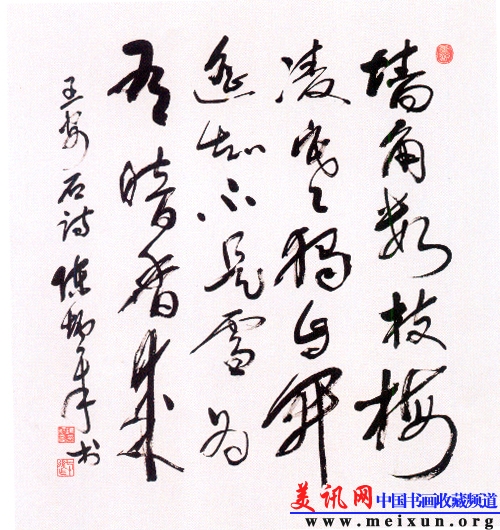 墙角数枝梅
凌寒独自开
遥知不是雪为
有暗香来
王安石诗 书
美讯网 中国书画收藏频道
www.meixun.org